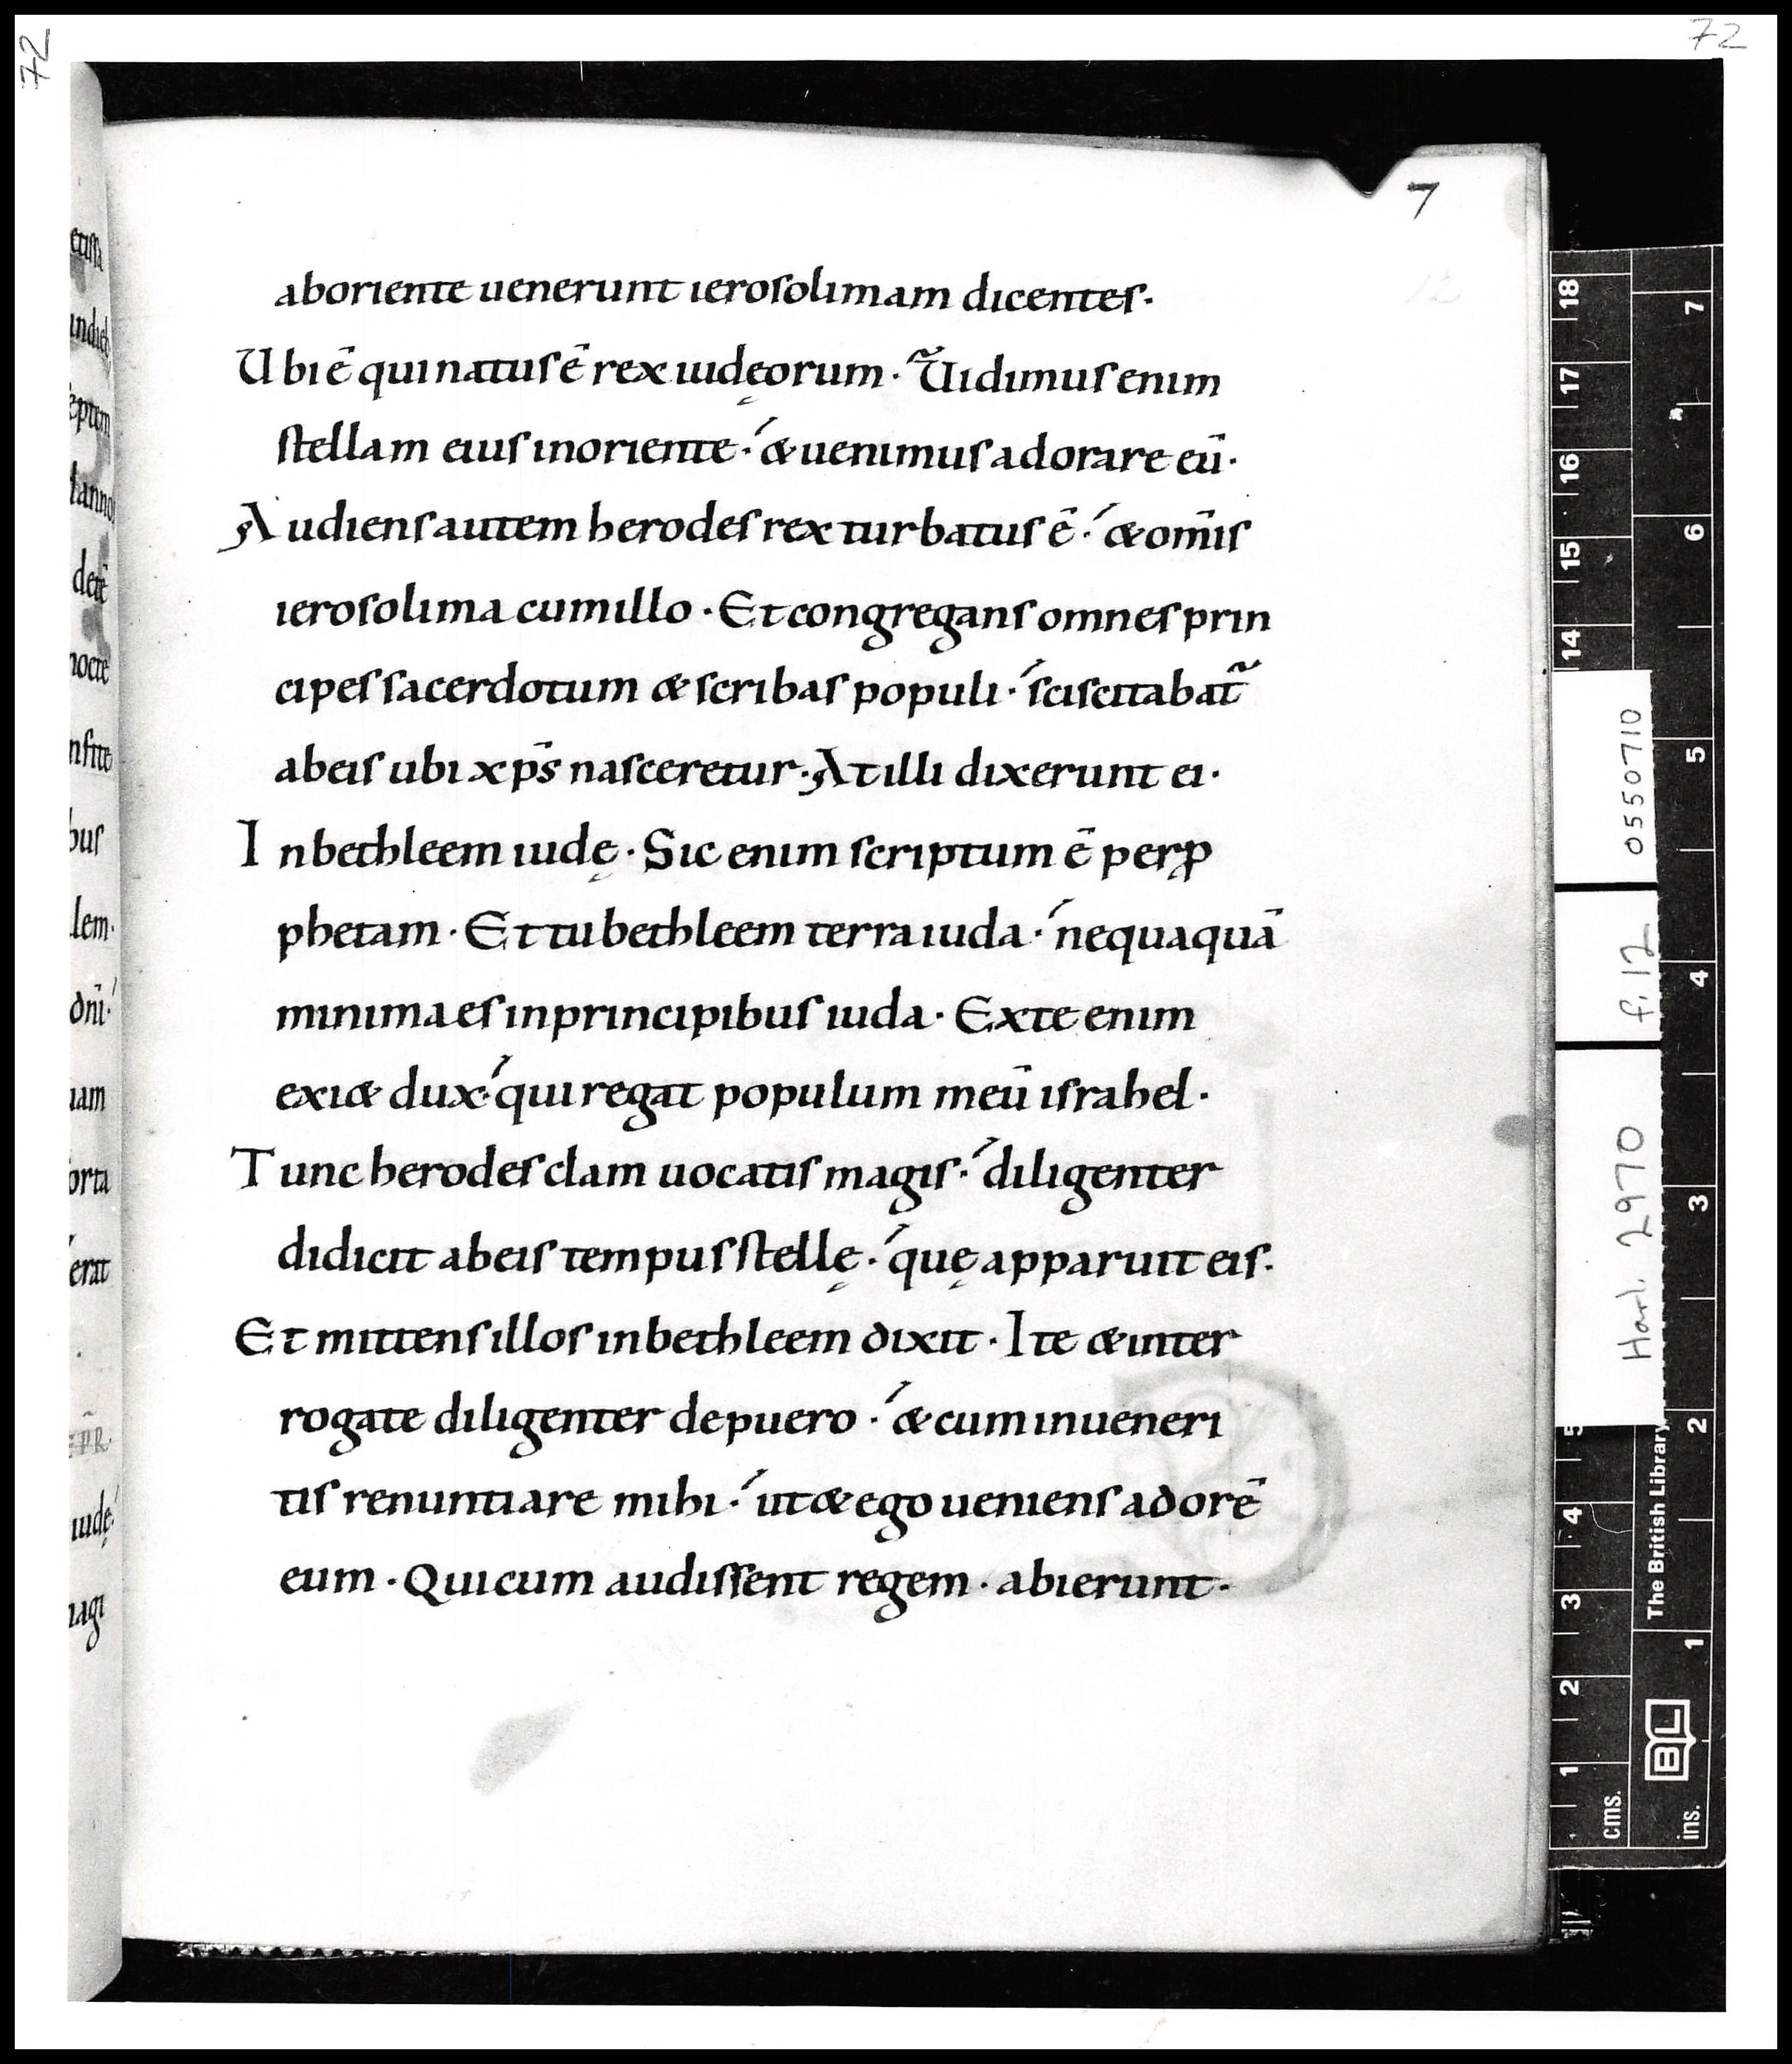 72
72
7
12
aboriente uenerunt ierosolimam dicentes·
Ubi ē qui natus ē rex iudęorum · Uidimus enim
stellam eius inoriente · & uenimus adorare eū·
Audiens autem herodes rex turbatus ē · & om̄is
ierosolima cum illo · Et congregans omnes prin
cipes sacerdotum & scribas populi · sciscitabat̃
abeis ubi xp̄s nasceretur · At illi dixerunt ei ·
Inbethleem iudę · Sic enim scriptum ē perꝓ
phetam · Et tu bethleem terra iuda · nequaquā
minima es inprincipibus iuda · Exte enim
exi& dux · qui regat populum meū israhel ·
Tunc herodes clam uocatis magis · diligenter
didicit abeis tempus stellę · quę apparuit eis ·
Et mittens illos inbethleem dixit · Ite & inter
rogate diligenter depuero · & cum inueneri
tis renuntiare mihi · ut & ego ueniens adorē
eum · Qui cum audissent regem · abierunt ·
septem
nocte
bus
lem·
dn̄i·
uam
orta
erat
iudę
magi
0550710
f. 12
Harl. 2970
The British Library
BL
cms.
1
2
3
4
5
14
15
16
17
18
ins.
1
2
3
4
5
6
7